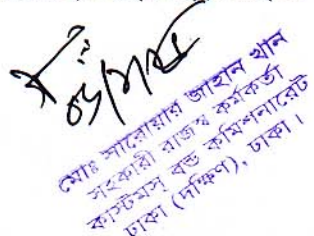 মোঃ সারোয়ার জাহান খান
সহকারী রাজস্ব কর্মকর্তা
কাস্টমস বন্ড কমিশনারেট
ঢাকা (দক্ষিণ), ঢাকা।